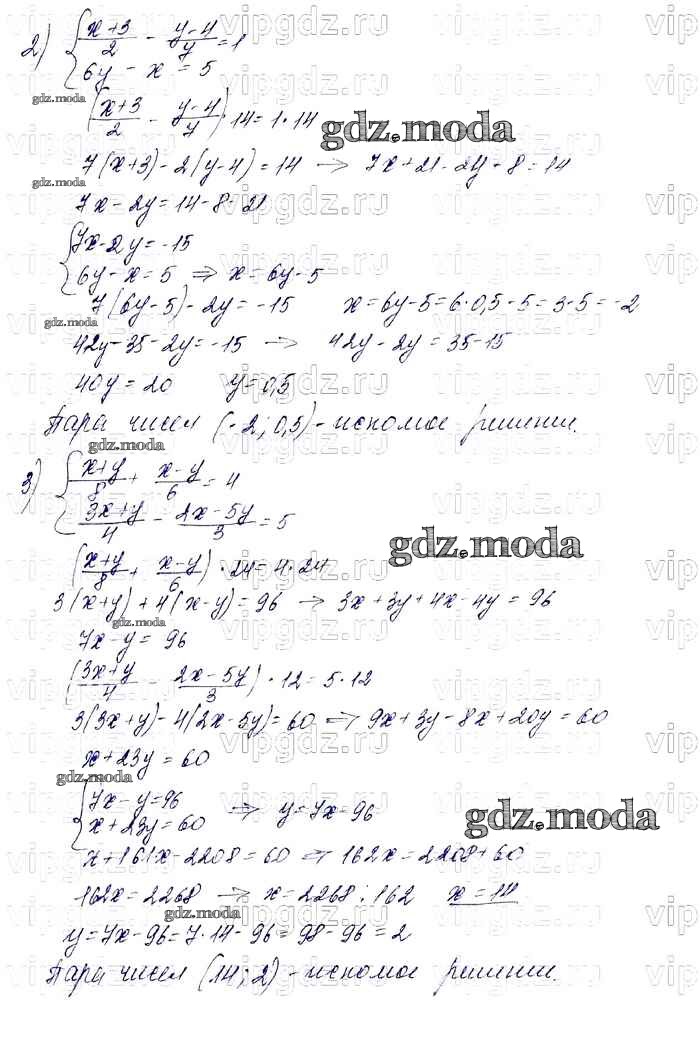 2) { (x+3)/2 - (y-4)/y = 1
6y - x = 5
gdz.moda
((x+3)/2 - (y-4)/7) · 14 = 1 · 14
gdz.moda
7(x+3) - 2(y-4) = 14 → 7x + 21 - 2y + 8 = 14
gdz.moda
7x - 2y = 14 - 8 - 21
{ 7x - 2y = -15
6y - x = 5 ⇒ x = 6y - 5
7(6y - 5) - 2y = -15 x = 6y - 5 = 6 · 0,5 - 5 = 3 - 5 = -2
gdz.moda
42y - 35 - 2y = -15 → 42y - 2y = 35 - 15
40y = 20 y = 0,5
Пара чисел (-2; 0,5) - искомое решение.
gdz.moda
3) { (x+y)/8 + (x-y)/6 = 4
(3x+y)/4 - (2x-5y)/3 = 5
gdz.moda
((x+y)/8 + (x-y)/6) · 24 = 4 · 24
3(x+y) + 4(x-y) = 96 → 3x + 3y + 4x - 4y = 96
gdz.moda
7x - y = 96
((3x+y)/4 - (2x-5y)/3) · 12 = 5 · 12
3(3x+y) - 4(2x-5y) = 60 ⇒ 9x + 3y - 8x + 20y = 60
x + 23y = 60
gdz.moda
{ 7x - y = 96
x + 23y = 60 ⇒ y = 7x - 96
gdz.moda
x + 161x - 2208 = 60 ⇒ 162x = 2208 + 60
162x = 2268 → x = 2268 : 162 x = 14
gdz.moda
y = 7x - 96 = 7 · 14 - 96 = 98 - 96 = 2
Пара чисел (14; 2) - искомое решение.
vipgdz.ru